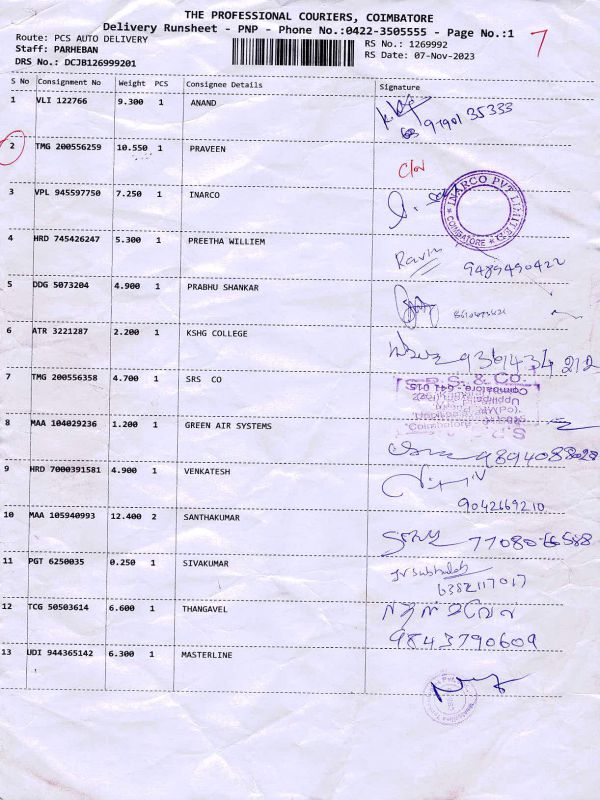 THE PROFESSIONAL COURIERS, COIMBATORE
Delivery Runsheet - PNP - Phone No.:0422-3505555 - Page No.:1
7
Route: PCS AUTO DELIVERY
RS No.: 1269992
Staff: PARHEBAN
RS Date: 07-Nov-2023
DRS No.: DCJB126999201
S No Consignment No Weight PCS Consignee Details Signature
1 VLI 122766 9.300 1 ANAND
91901 35333
2 TMG 200556259 10.550 1 PRAVEEN
3 VPL 945597750 7.250 1 INARCO
INARCO PVT LIMITED
* COIMBATORE *
4 HRD 745426247 5.300 1 PREETHA WILLIEM
Ravin
9489490422
5 DDG 5073204 4.900 1 PRABHU SHANKAR
6 ATR 3221287 2.200 1 KSHG COLLEGE
9361434212
7 TMG 200556358 4.700 1 SRS CO
S.R.S. & CO.
Coimbatore - 641 015
8 MAA 104029236 1.200 1 GREEN AIR SYSTEMS
9894088028
9 HRD 7000391581 4.900 1 VENKATESH
9042669210
10 MAA 105940993 12.400 2 SANTHAKUMAR
77080-66588
11 PGT 6250035 0.250 1 SIVAKUMAR
6382117017
12 TCG 50503614 6.600 1 THANGAVEL
9843790609
13 UDI 944365142 6.300 1 MASTERLINE